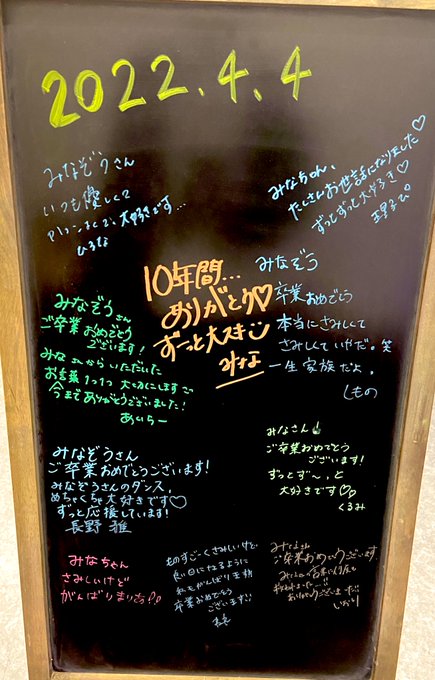 2022.4.4
みなぞうさん
いつも優しくて
大好きです...
ひろな
みなちゃん、
たくさんお世話になりました♡
ずっとずっと大好き♡
理子ぴ
10年間...
ありがとう♡
ずっと大スキ
みな
みなぞう
卒業おめでとう
本当にさみしくて
さみしくていやだ。笑
一生家族だよ。
しもの
みなぞうさん
ご卒業おめでとう
ございます!
みなさんからいただいた
お言葉1つ1つ大切にします
今までありがとうございました!
あいらー
みなさん
ご卒業おめでとう
ございます!
ずっとず〜っと
大好きです♡
くるみ
みなぞうさん
ご卒業おめでとうございます!
みなぞうさんのダンス、
めちゃくちゃ大好きです♡
ずっと応援しています!
長野 雅
みなちゃん
さみしいけど
がんばりまりょう!
ものすごーくさみしいけど
良い日になるように
私もがんばります
卒業おめでとう
ございます
ご卒業おめでとうございます。
ありがとうございました
いおり